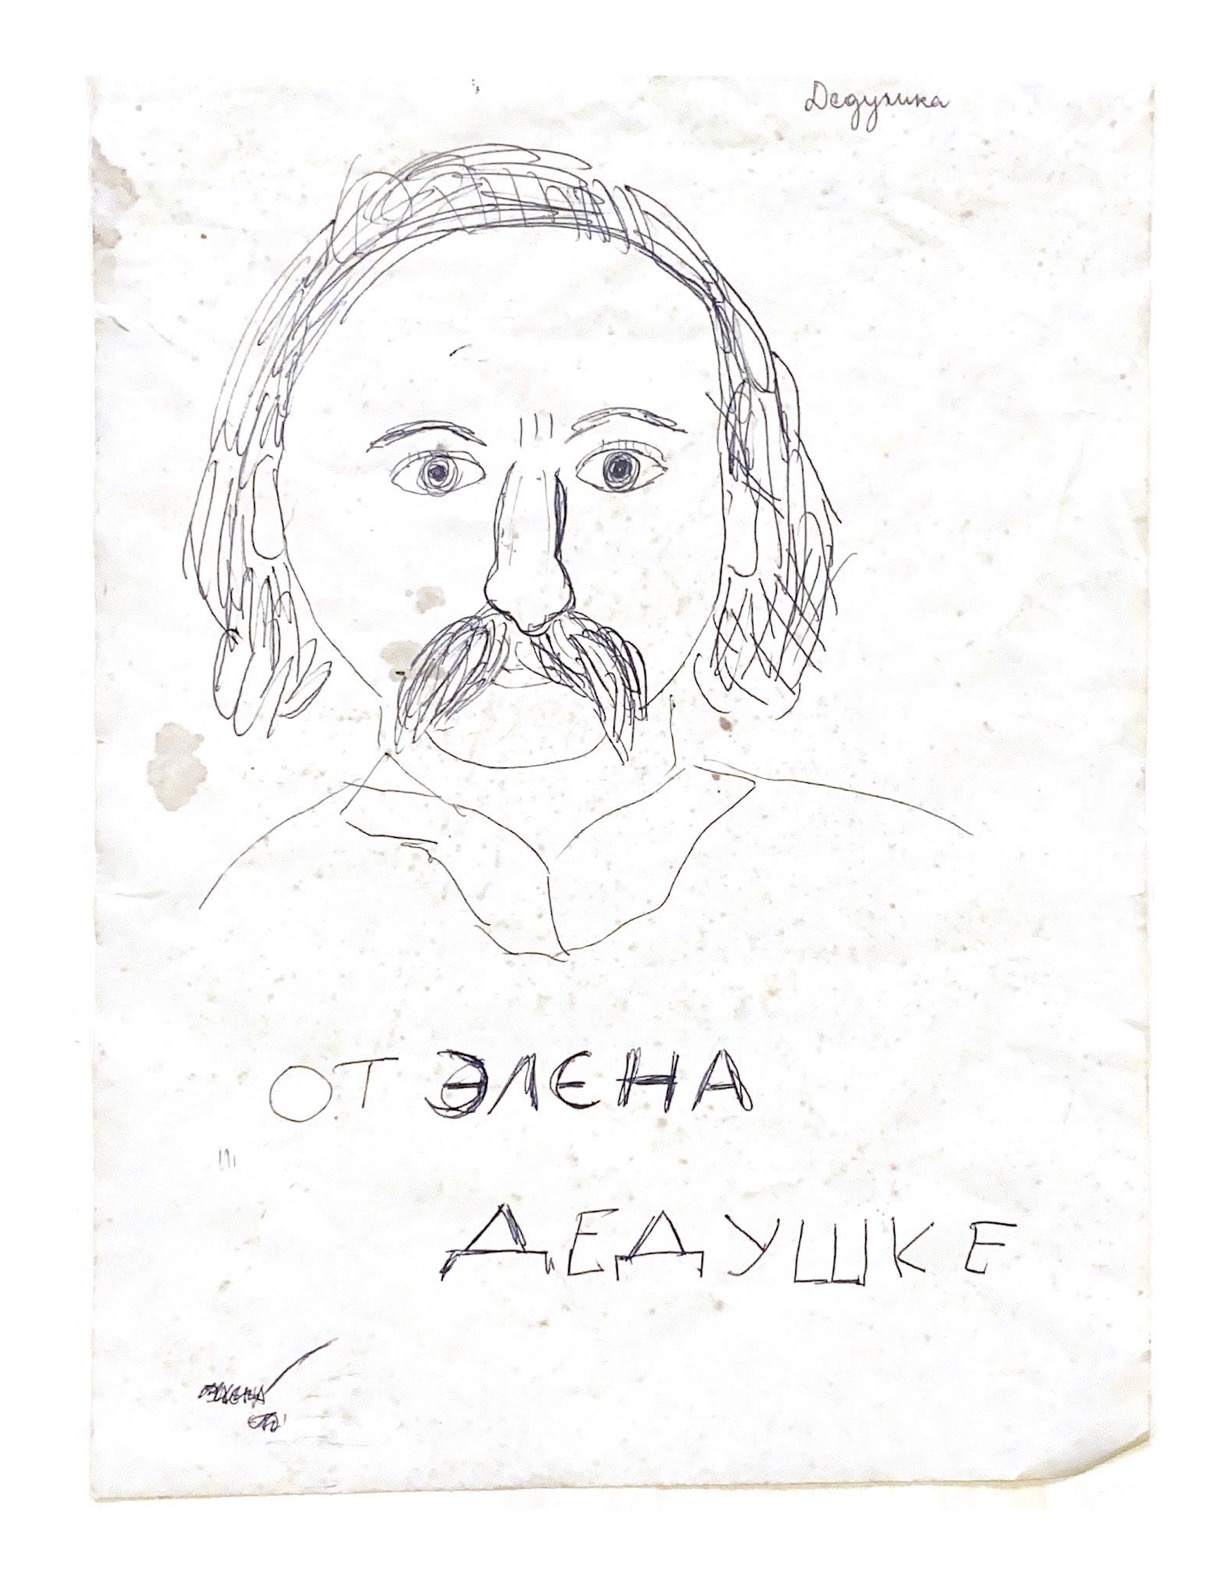 Дедушка
ОТ ЭЛЕНА
ДЕДУШКЕ